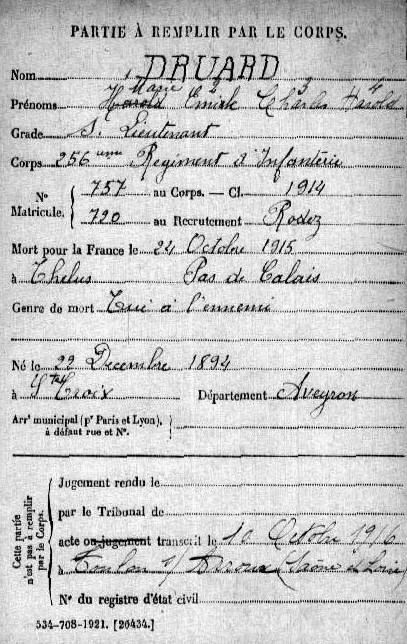 PARTIE À REMPLIR PAR LE CORPS.
Nom DRUARD
1 Marie 2 3 4
Prénoms Harold Emile Charles Harold
Grade S. Lieutenant
Corps 256 eme Regiment d'Infanterie
N° Matricule. 757 au Corps. — Cl. 1914
720 au Recrutement Rodez
Mort pour la France le 24 Octobre 1915
à Thelus Pas de Calais
Genre de mort Tué à l'ennemi
Né le 22 Decembre 1894
à Ste Croix Département Aveyron
Arrt municipal (pr Paris et Lyon), à défaut rue et N°.
Cette partie n'est pas à remplir par le Corps.
Jugement rendu le
par le Tribunal de
acte ou jugement transcrit le 10 Octobre 1916
à Toulon s/ Arroux (Saône et Loire)
N° du registre d'état civil
534-708-1921. [26434.]